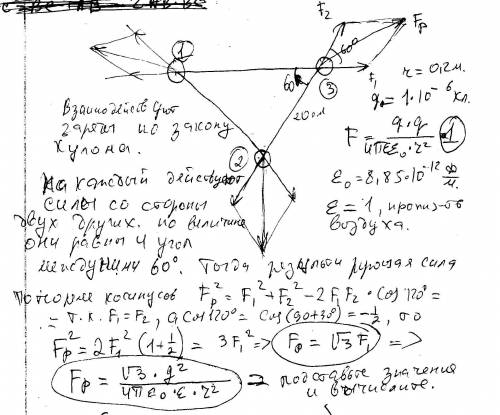 F₂
Fр
60°
1
60°
3
F₁
r = 0,2м.
q = 1·10⁻⁶ кл.
20 см
Взаимодействуют
заряды по закону
Кулона.
F = q·q / 4πεε₀·r² 1
2
ε₀ = 8,85·10⁻¹² Ф/м.
ε = 1,
воздуха.
На каждый действуют
силы со стороны
двух других. по величине
они равны и угол
между ними 60°. Тогда результирующая сила
По теореме косинусов Fр² = F₁² + F₂² - 2F₁F₂·cos120° =
= т.к. F₁=F₂, а cos120° = cos(90+30) = -1/2, то
Fр² = 2F₁²(1+1/2) = 3F₁² => Fр = √3 F₁ =>
Fр = √3·q² / 4πε₀·ε·r² => подставьте значения
и вычислите.